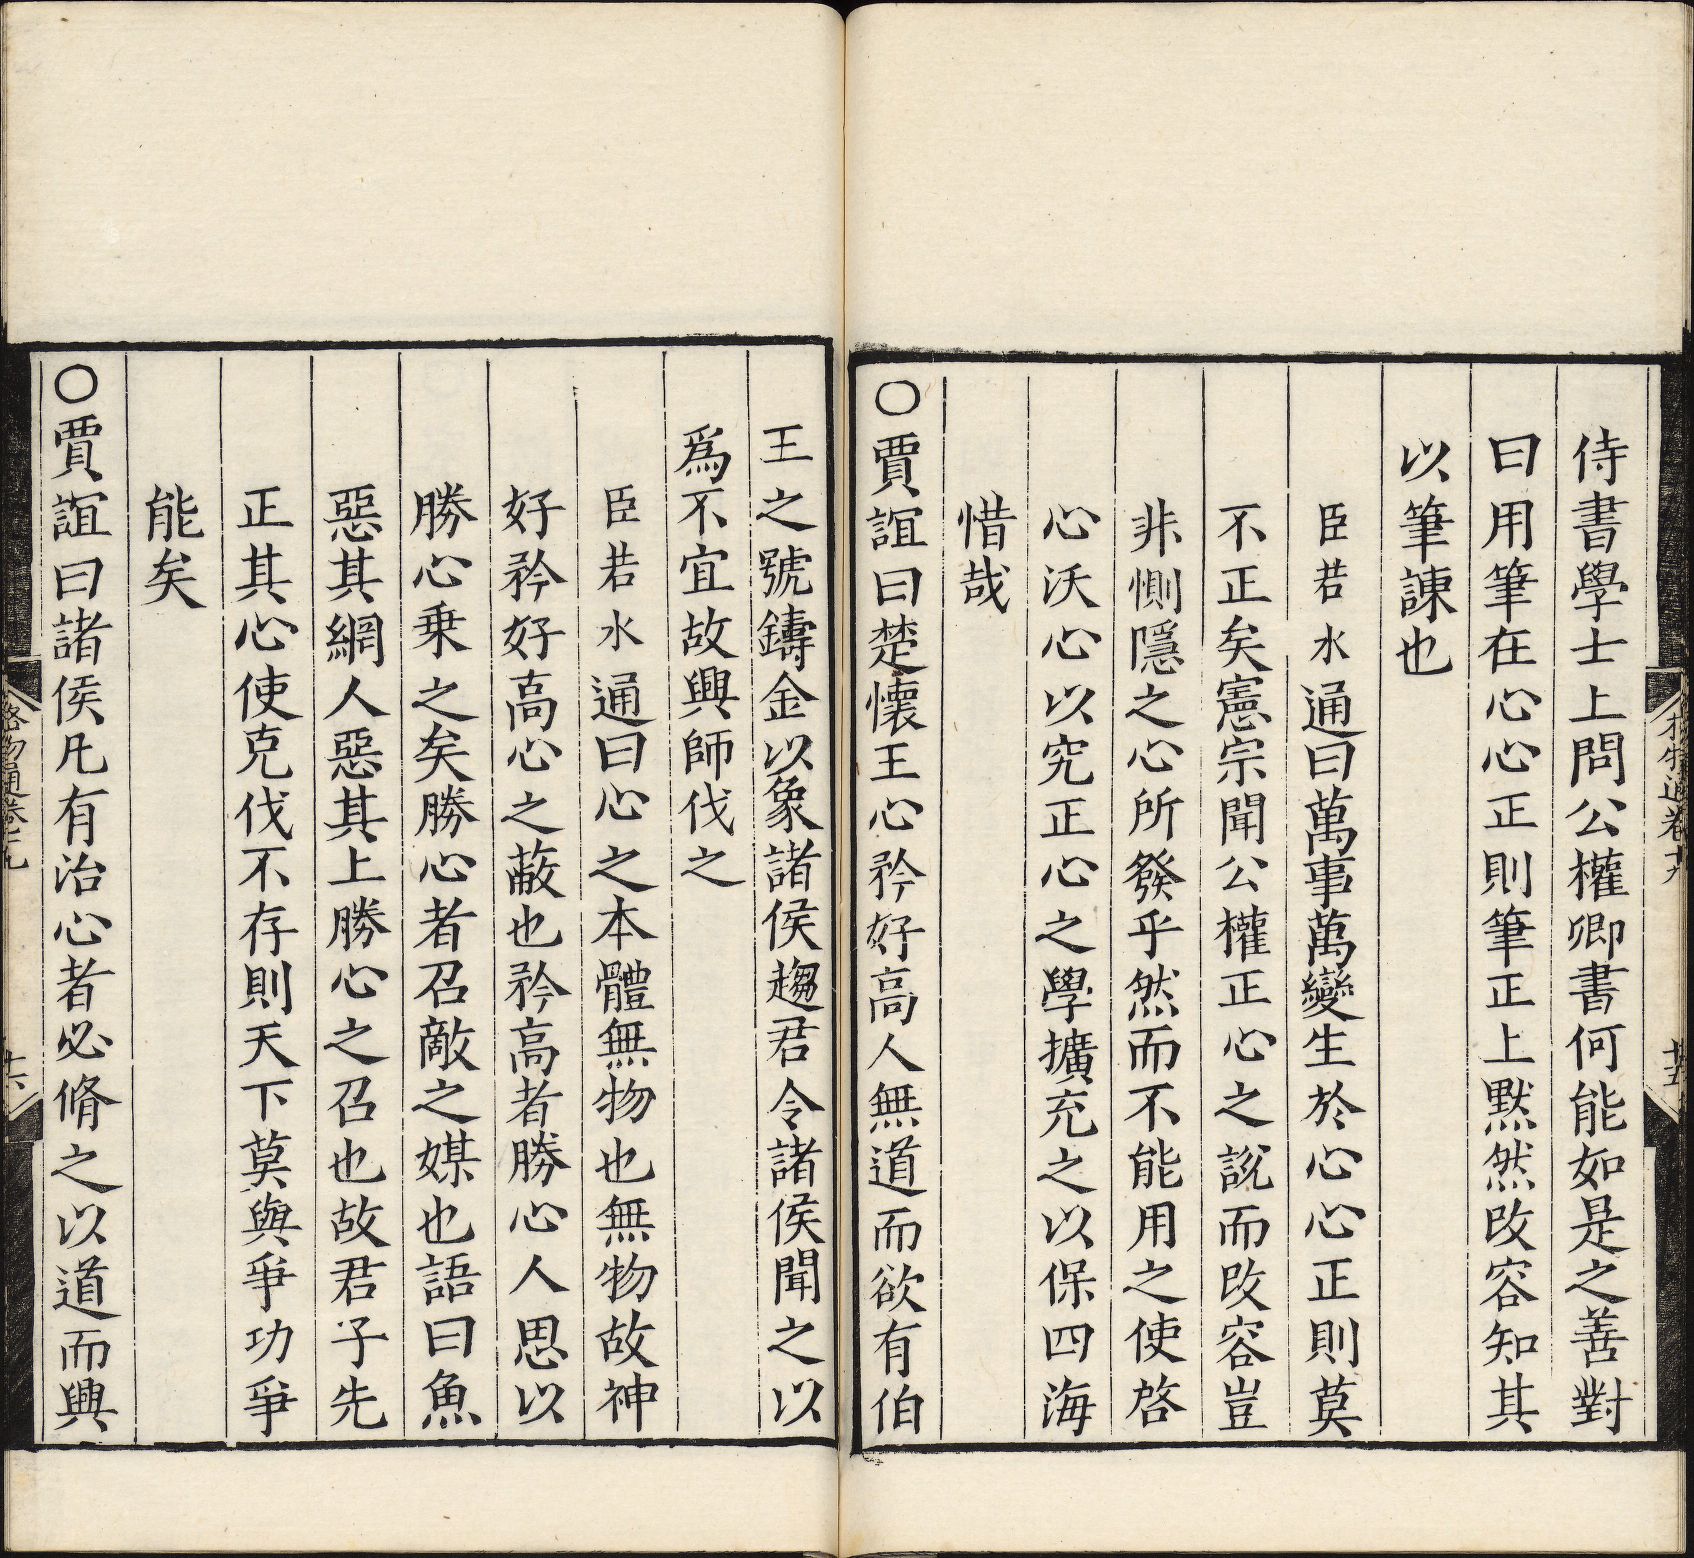 侍書學士上問公權卿書何能如是之善對
曰用筆在心心正則筆正上默然改容知其
以筆諫也
臣若水通曰萬事萬變生於心心正則莫
不正矣憲宗聞公權正心之說而改容豈
非惻隱之心所發乎然而不能用之使啓
心沃心以究正心之學擴充之以保四海
惜哉
○賈誼曰楚懷王心矜好高人無道而欲有伯
王之號鑄金以象諸侯趨君令諸侯聞之以
爲不宜故興師伐之
臣若水通曰心之本體無物也無物故神
好矜好高心之蔽也矜高者勝心人思以
勝心乗之矣勝心者召敵之媒也語曰魚
惡其網人惡其上勝心之召也故君子先
正其心使克伐不存則天下莫與爭功爭
能矣
○賈誼曰諸侯凡有治心者必脩之以道而興